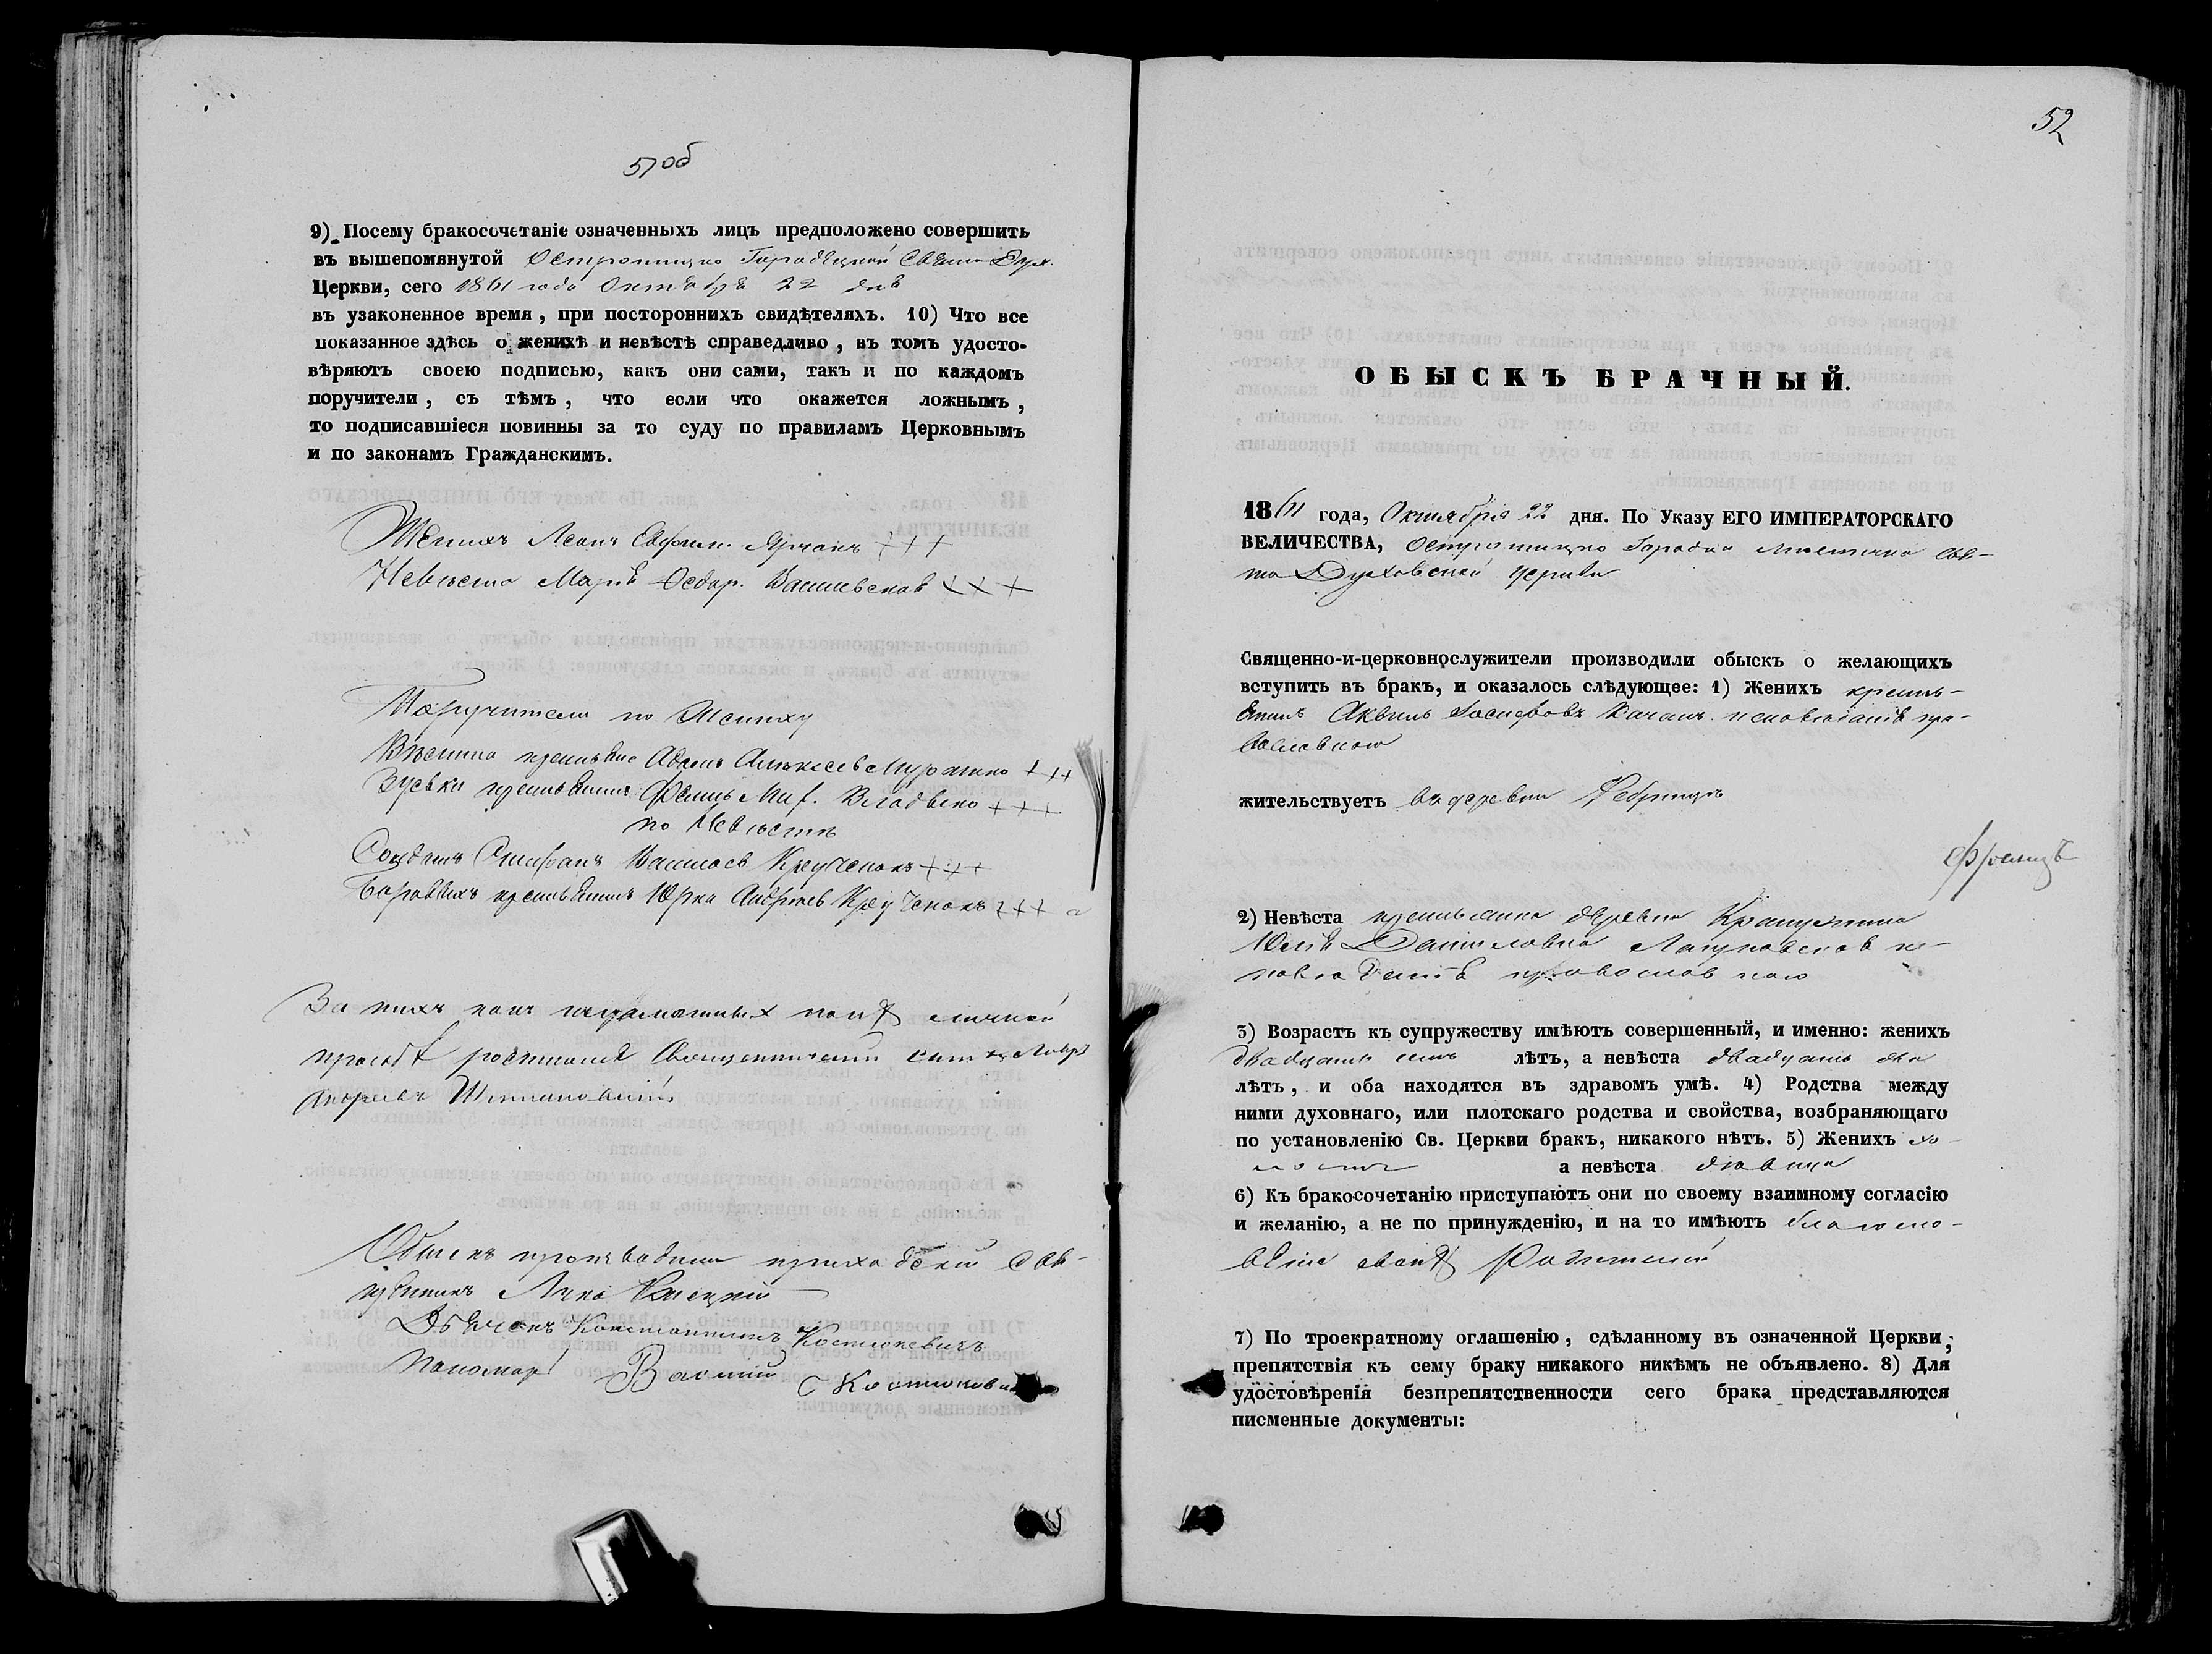 51 об
9) Посему бракосочетаніе означенныхъ лицъ предположено совершить
въ вышепомянутой Острошицко Городецкой Свято Дух.
Церкви, сего 1861 года Октября 22 дня
въ узаконенное время, при постороннихъ свидѣтеляхъ. 10) Что все
показанное здѣсь о женихѣ и невѣстѣ справедливо, въ томъ удосто-
вѣряютъ своею подписью, какъ они сами, такъ и по каждомъ
поручители, съ тѣмъ, что если что окажется ложнымъ,
то подписавшіеся повинны за то суду по правиламъ Церковнымъ
и по законамъ Гражданскимъ.
Женихъ Леонъ +++
Невѣста Марія Ѳедор. +++
Поручители по Жениху
крестьяне Адамъ Алексеевъ Мурашко +++
крестьянинъ +++
по Невѣстѣ
Солдатъ Стефанъ +++
крестьянинъ Юрка Андреевъ +++
За нихъ какъ неграмотныхъ по ихъ личной
просьбѣ росписался Священнический сынъ
Андреевъ
Обыскъ производили приходскій Свя-
щенникъ Лука
Дьячокъ Константинъ Костюкевичъ
Пономарь Василій Костюкевичъ
52
ОБЫСКЪ БРАЧНЫЙ.
1861 года, Октября 22 дня. По Указу ЕГО ИМПЕРАТОРСКАГО
ВЕЛИЧЕСТВА, Острошицко Городка мѣстечка Свя-
то Духовской церкви
Священно-и-церковнослужители производили обыскъ о желающихъ
вступить въ бракъ, и оказалось слѣдующее: 1) Женихъ кресть-
янинъ Іосифовъ Качанъ исповѣданія пра-
вославнаго
жительствуетъ въ деревни
2) Невѣста крестьянка деревни
Юлія Даниловна ис-
повѣданія православнаго
3) Возрастъ къ супружеству имѣютъ совершенный, и именно: женихъ
двадцать лѣтъ, а невѣста двадцать два
лѣтъ, и оба находятся въ здравомъ умѣ. 4) Родства между
ними духовнаго, или плотскаго родства и свойства, возбраняющаго
по установленію Св. Церкви бракъ, никакого нѣтъ. 5) Женихъ хо-
лостъ а невѣста дѣвица
6) Къ бракосочетанію приступаютъ они по своему взаимному согласію
и желанію, а не по принужденію, и на то имѣютъ благосло-
веніе своихъ Родителей
7) По троекратному оглашенію, сдѣланному въ означенной Церкви,
препятствія къ сему браку никакого никѣмъ не объявлено. 8) Для
удостовѣренія безпрепятственности сего брака представляются
писменные документы: